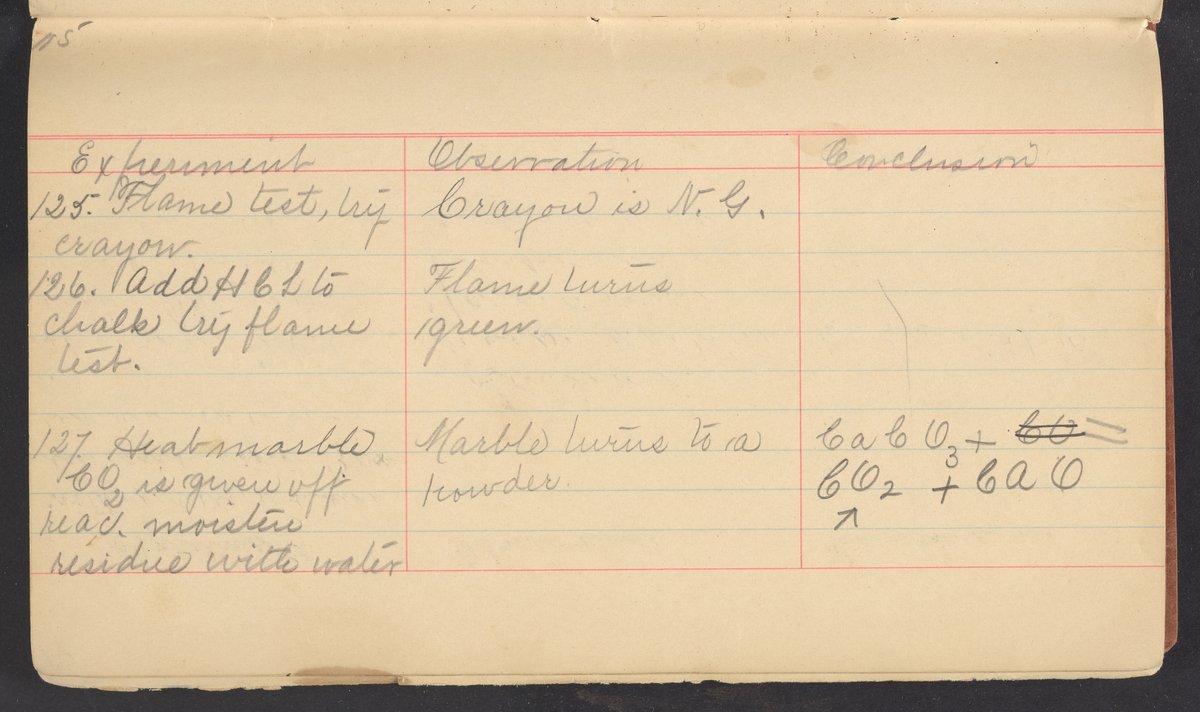 115
Experiment
Observation
Conclusion
125. Flame test, try
crayon.
Crayon is N. G.
126. Add HCL to
chalk try flame
test.
Flame turns
green.
127. Heat marble,
CO2 is given off
reac. moisten
residue with water
Marble turns to a
powder.
CaCO3 + CO =
CO2 + CAO
↗